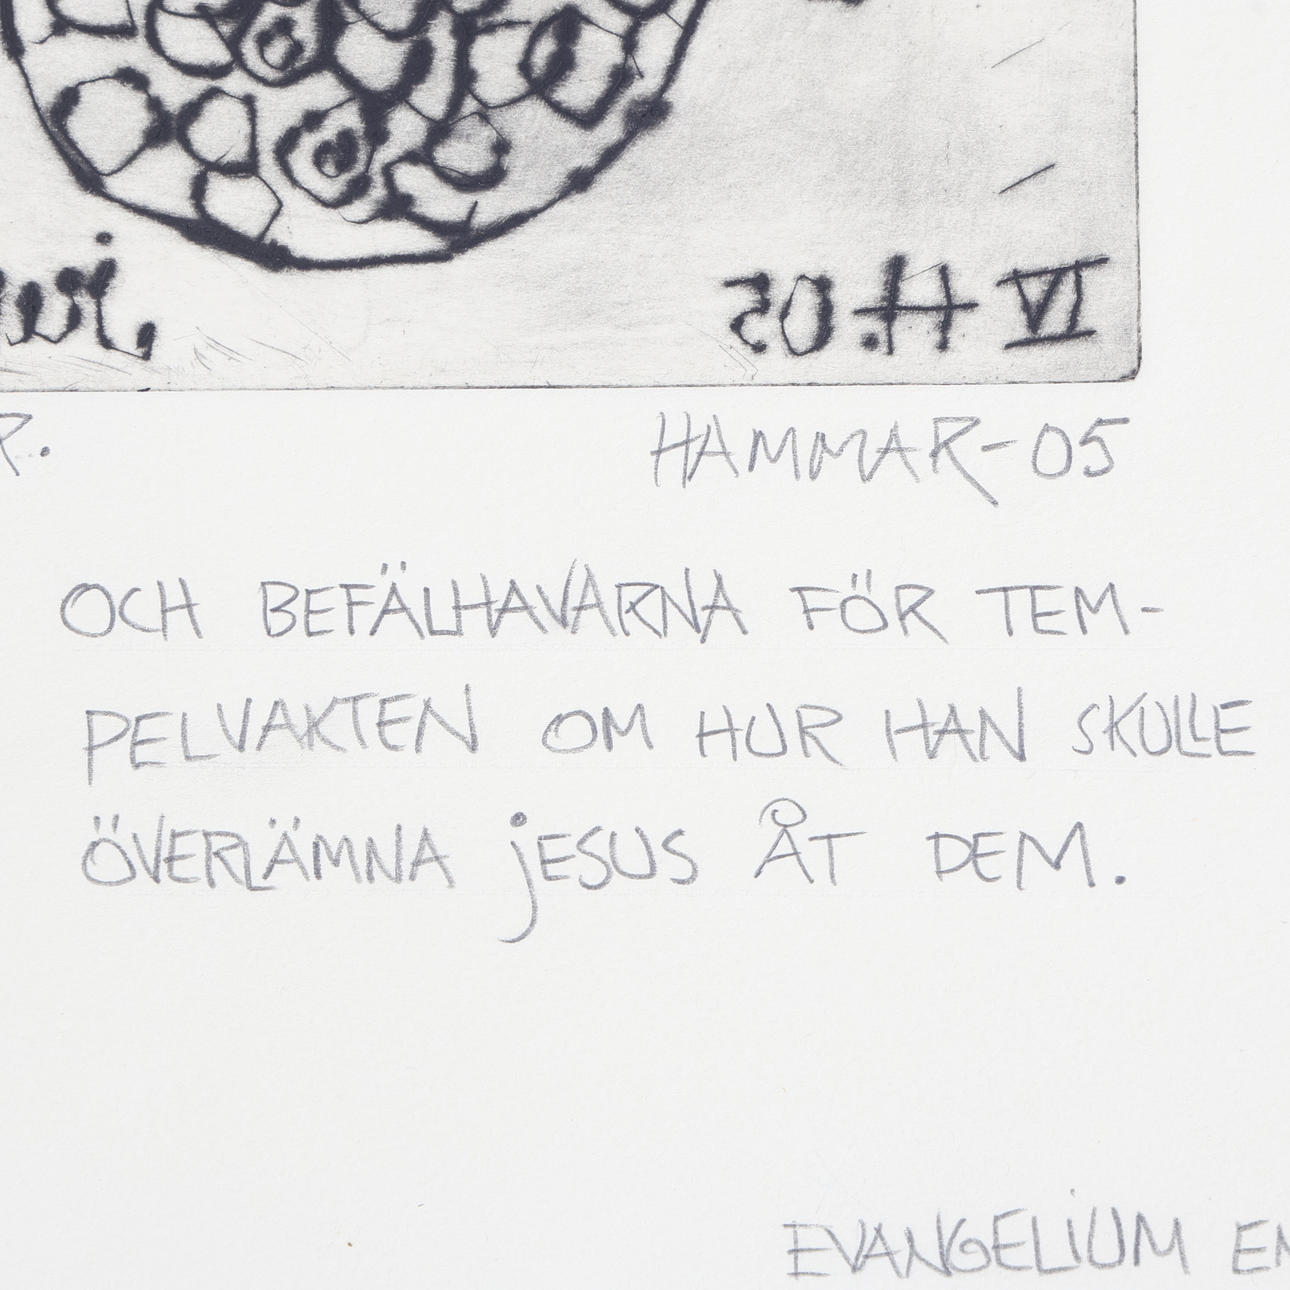 IV H. 05
R.
HAMMAR-05
OCH BEFÄLHAVARNA FÖR TEM-
PELVAKTEN OM HUR HAN SKULLE
ÖVERLÄMNA JESUS ÅT DEM.
EVANGELIUM